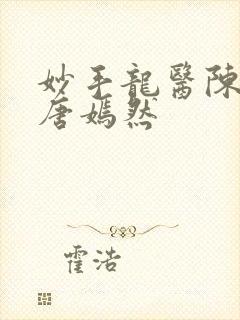 妙手龍醫陳
唐嫣然
霍浩